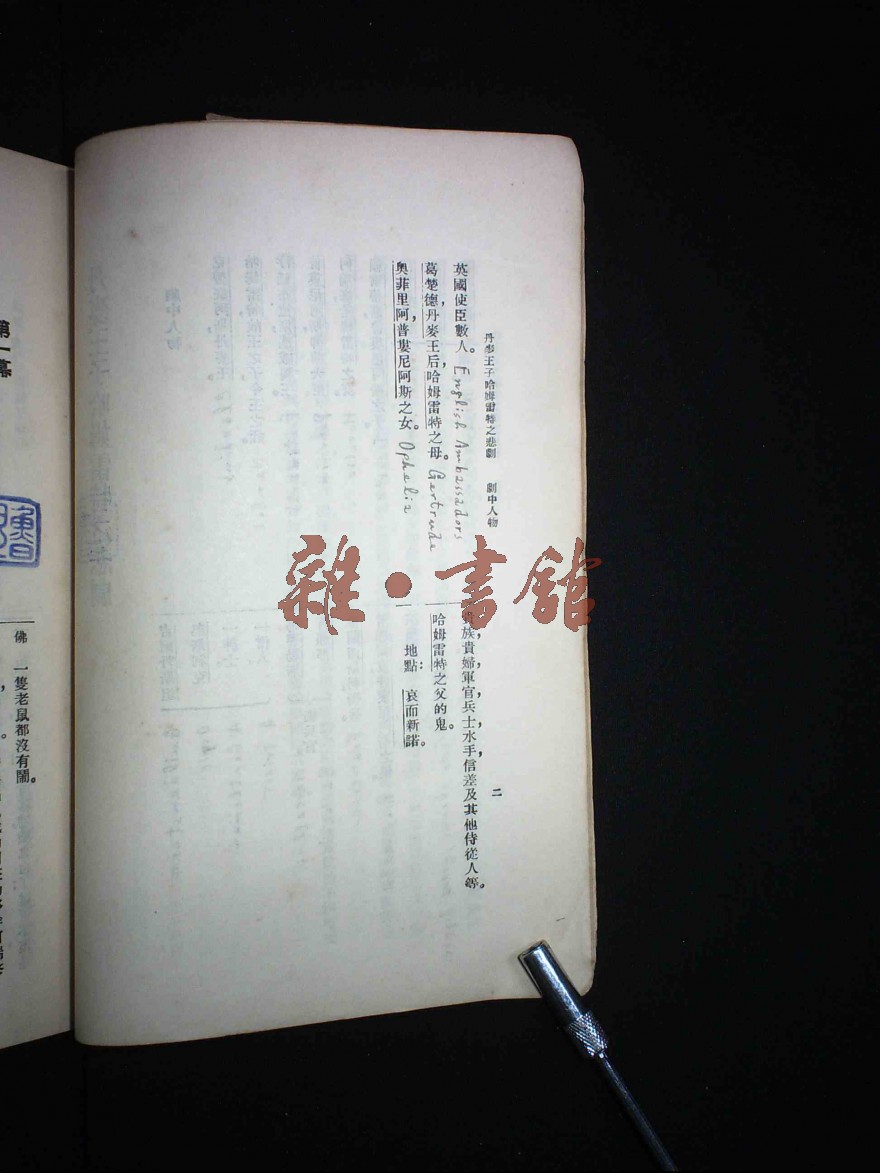 丹麥王子哈姆雷特之悲劇 劇中人物
二
英國使臣數人。 English Ambassadors
葛楚德,丹麥王后,哈姆雷特之母。 Gertrude
奧菲里阿,普婁尼阿斯之女。 Ophelia
貴族,貴婦,軍官,兵士,水手,信差,及其他侍從人等。
哈姆雷特之父的鬼。
地點:哀而新諾。
雜·書館
第一幕
佛 一隻老鼠都沒有鬧。